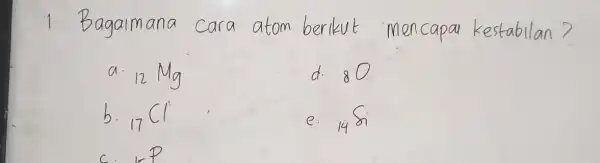 1 Bagaimana cara atom berikut mencapai kestabilan?
a. 12 Mg
d. 8 O
b. 17 Cl
e. 14 Si
c. P